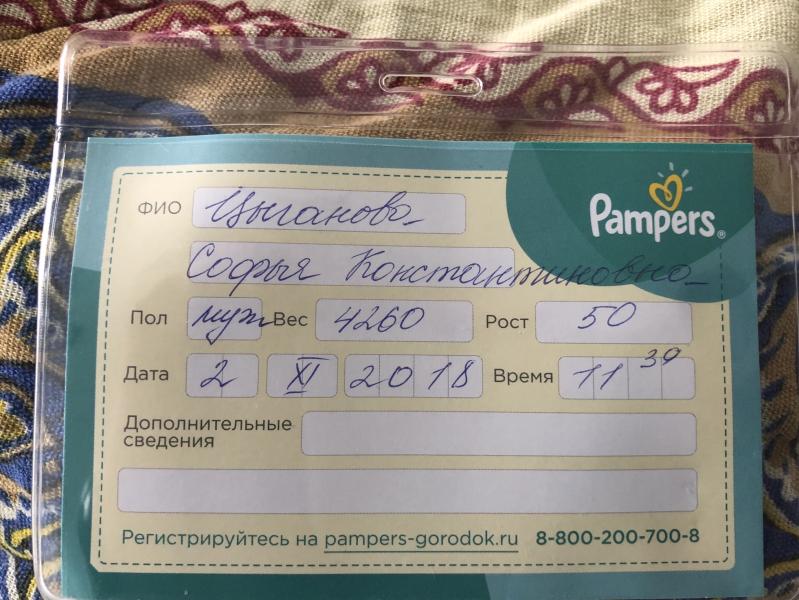 Pampers®
ФИО Цыганова
Софья Константиновна
Пол муж Вес 4260 Рост 50
Дата 2 XI 2018 Время 11 39
Дополнительные
сведения
Регистрируйтесь на pampers-gorodok.ru 8-800-200-700-8